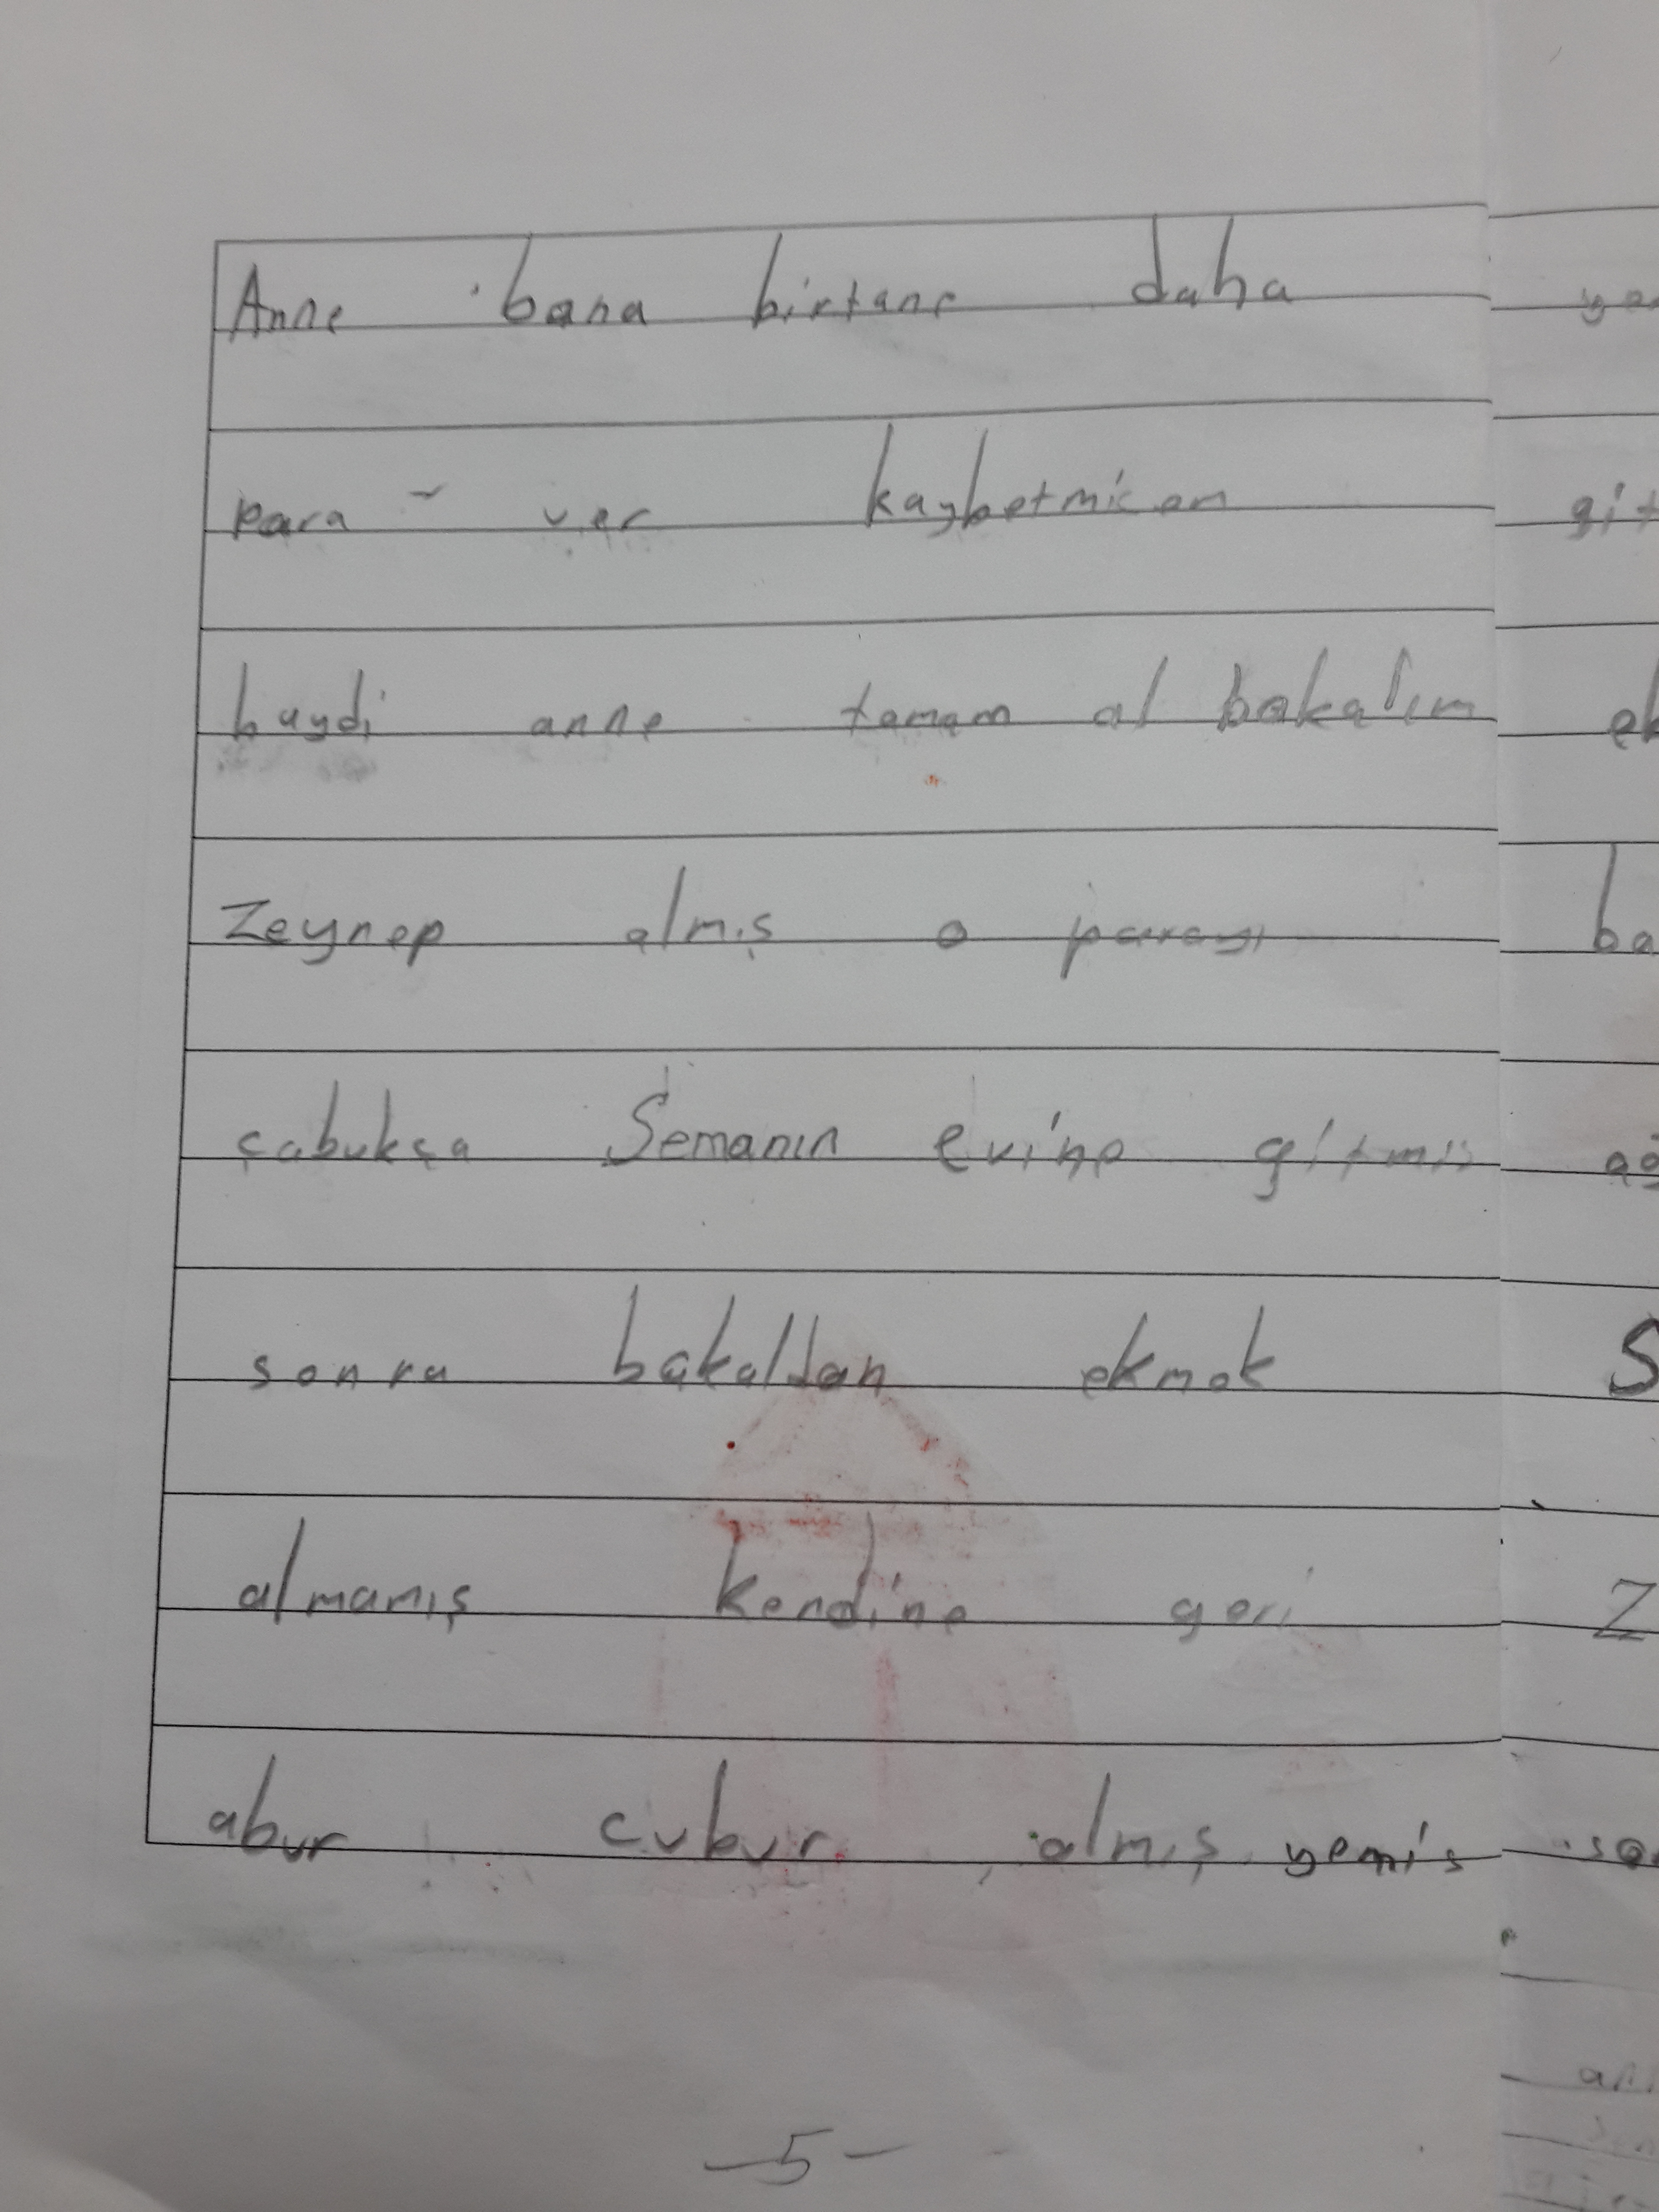 Anne bana birtane daha
para ver kaybetmicem
haydi anne tamam al bakalım
Zeynep almış o parayı
çabukça Semanın evine gitmiş
sonra bakaldan ekmek
almamış kendine geri
abur cubur almış yemis
-5-